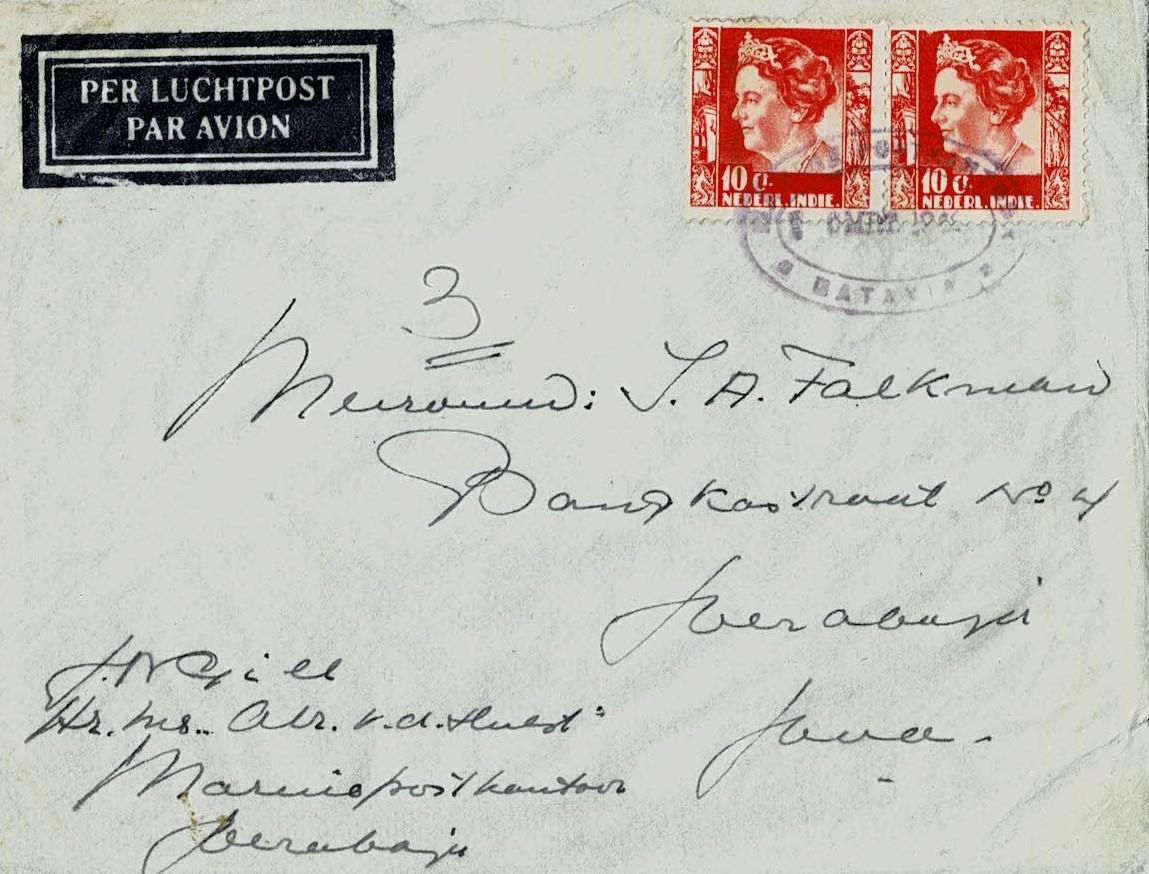 PER LUCHTPOST
PAR AVION
10 c.
NEDERL. INDIE.
10 c.
NEDERL. INDIE.
BATAVIA
3
Mevrouw: A. Falkman
Bangkastraat No 4
Soerabaja
Java -
Hr. Ms. Abr. v. d. Hulst"
Marinepostkantoor
Soerabaja